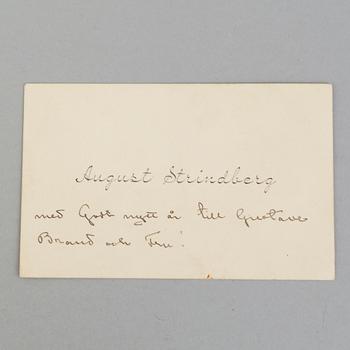 August Strindberg
med Godt nytt år till Gustave
Brand och Fru!